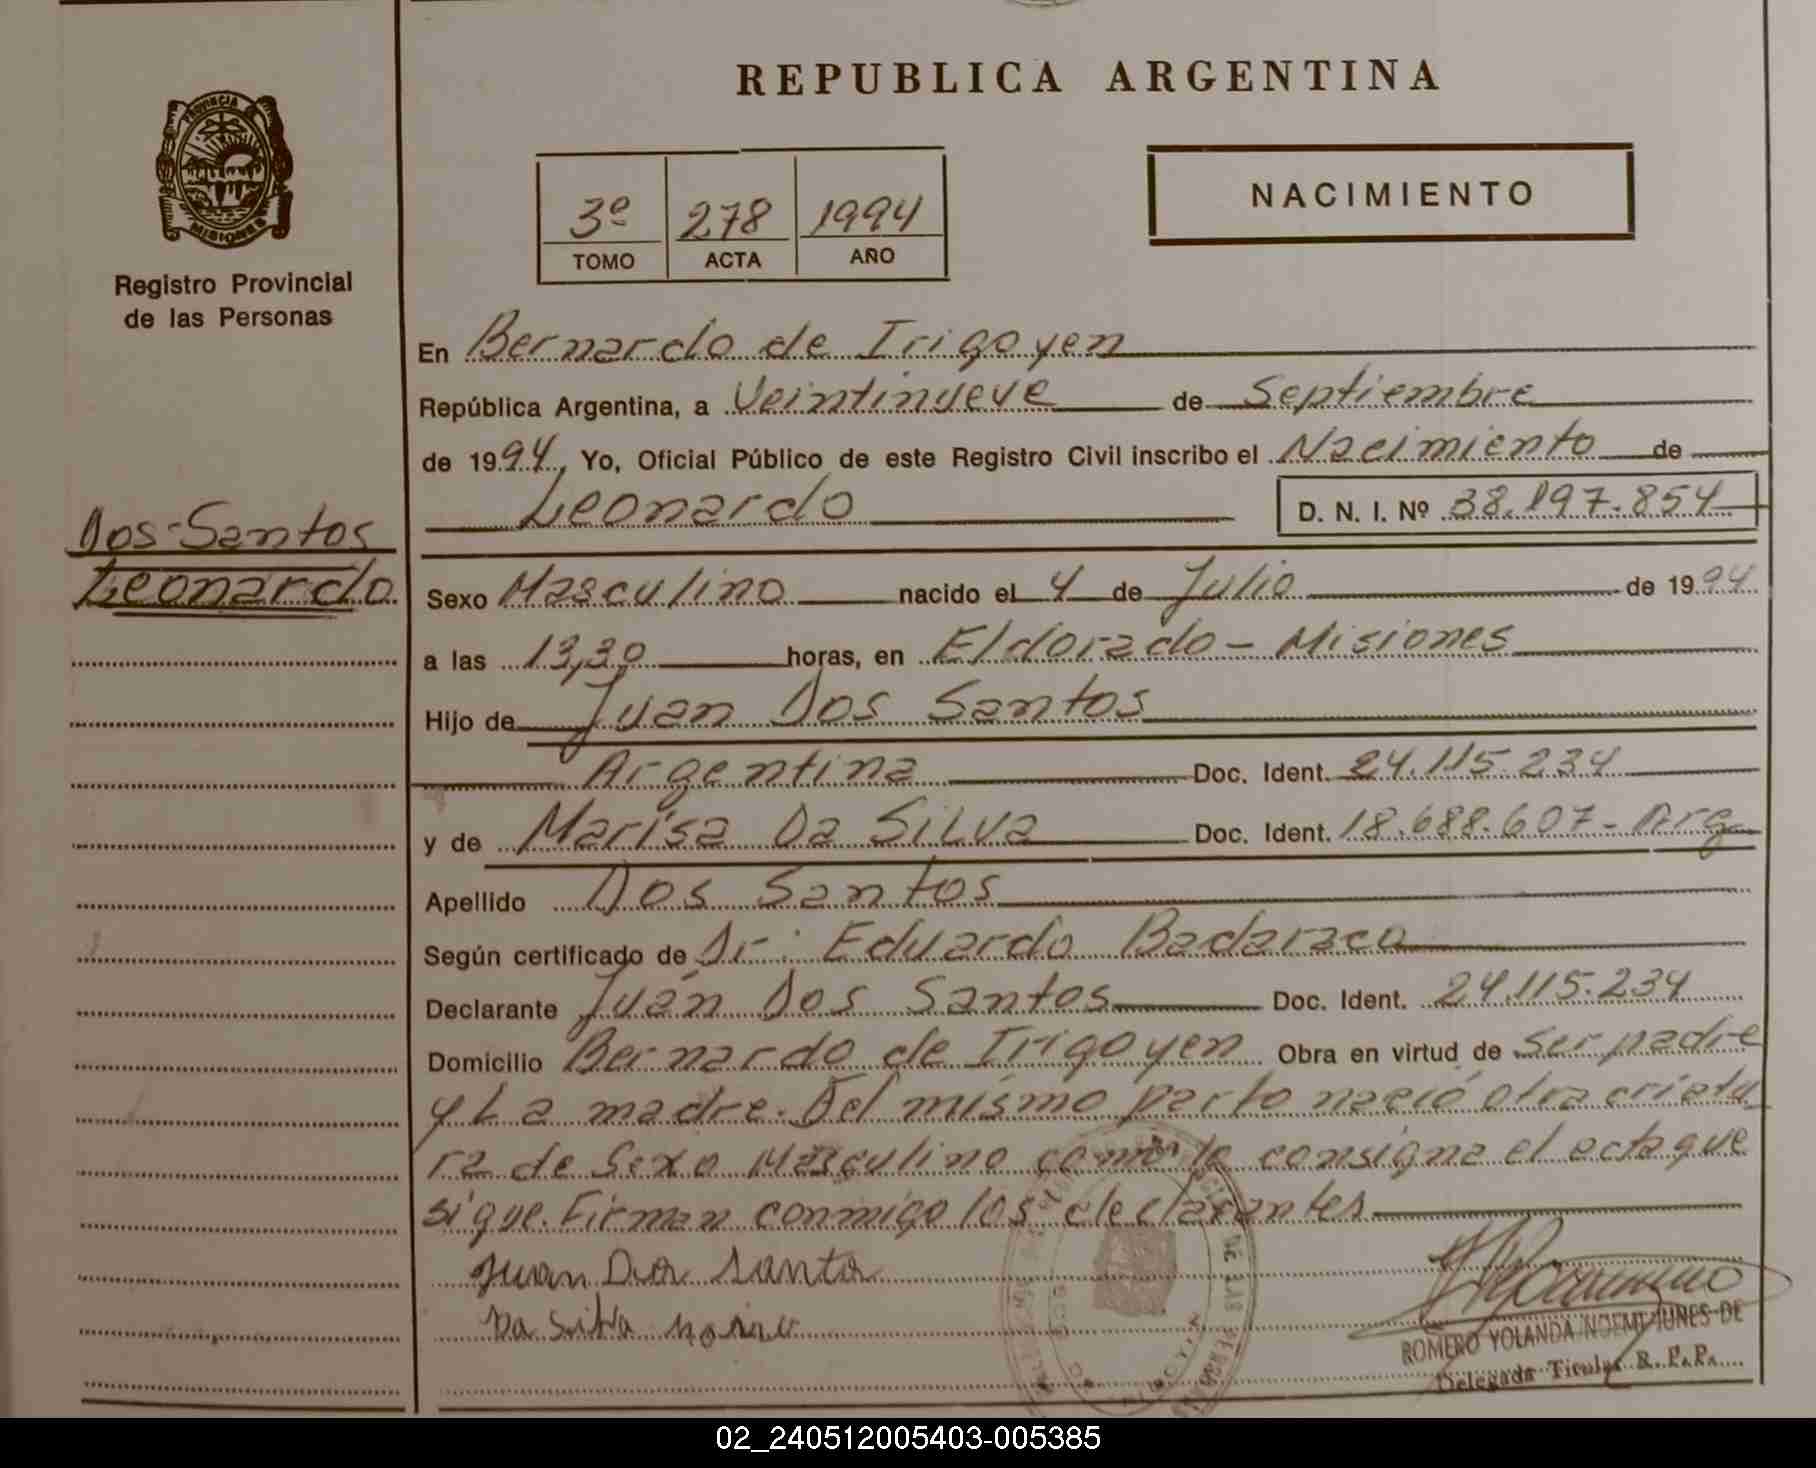 PROVINCIA
MISIONES
Registro Provincial
de las Personas
Dos-Santos
Leonardo
REPUBLICA ARGENTINA
3º 278 1994
TOMO ACTA AÑO
NACIMIENTO
En Bernardo de Irigoyen
República Argentina, a Veintinueve de Septiembre
de 1994, Yo, Oficial Público de este Registro Civil inscribo el Nacimiento de
Leonardo D. N. I. Nº 38.197.854
Sexo Masculino nacido el 4 de Julio de 1994
a las 13,30 horas, en Eldorado - Misiones
Hijo de Juan Dos Santos
Argentina Doc. Ident. 24.115.234
y de Marisa Da Silva Doc. Ident. 18.688.607- Arg
Apellido Dos Santos
Según certificado de Dr: Eduardo Badaraco
Declarante Juan Dos Santos Doc. Ident. 24.115.234
Domicilio Bernardo de Irigoyen Obra en virtud de ser padre
y La madre. Del mismo parto nació otra criatu
ra de Sexo Masculino como lo consigna el acta que
sigue. Firman conmigo los declarantes
Juan Dos Santo
Da Silva
ROMERO YOLANDA NOEMI
Delegada Titular R. P. P.
02_240512005403-005385